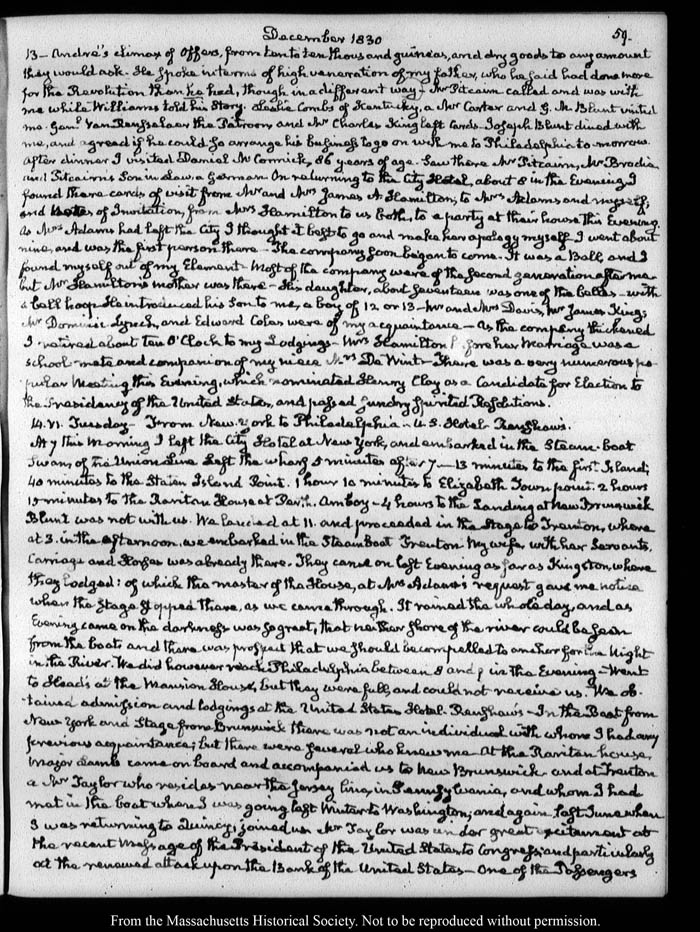 December 1830
59.
13 — André's climax of Offers, from ten to ten thousand guineas, and dry goods to any amount
they would ask. He spoke in terms of high veneration of my father, who he said had done more
for the Revolution than he had, though in a different way — Mr Pitcairn called and was with
me while Williams told his Story. Leslie Combs of Kentucky, a Mr Carter and G. M. Blunt visited
me. Genl. Van Rensselaer the Patroon, and Mr Charles King left Cards. Joseph Blunt dined with
me, and agreed if he could so arrange his business to go on with me to Philadelphia to-morrow.
After dinner I visited Daniel McCormick, 86 years of age. Saw there Mr Pitcairn, Mr Brodie
and Pitcairn's Son in law a German. On returning to the City Hotel, about 8 in the Evening I
found there cards of visit from Mr and Mrs James A. Hamilton, to Mrs Adams and myself,
and Notes of Invitation, from Mrs Hamilton to us both, to a party at their house this Evening.
As Mrs Adams had left the City I thought it best to go and make her apology myself. I went about
nine, and was the first person there — The company soon began to come. It was a Ball, and I
found myself out of my Element — Most of the company were of the second generation after me
but Mr Hamilton's mother was there — His daughter, about seventeen was one of the belles — with
a bell hoop. He introduced his Son to me, a boy of 12 or 13 — Mr and Mrs Davis, Mr James King,
Mr Dominic Lynch, and Edward Coles were of my acquaintance — As the company thickened
I retired about ten O'Clock to my Lodgings — Mrs Hamilton before her Marriage was a
school-mate and companion of my niece Mrs De Wint — There was a very numerous po-
pular Meeting this Evening, which nominated Henry Clay as a Candidate for Election to
the Presidency of the United States, and passed sundry spirited Resolutions.
14. VI. Tuesday — From New-York to Philadelphia — U.S. Hotel. Renshaw's.
At 7 this Morning I left the City Hotel at New York, and embarked in the Steam-boat
Swan, of the Union Line. Left the wharf 5 minutes after 7 — 13 minutes to the first Island;
40 minutes to the Staten Island Point. 1 hour 10 minutes to Elizabeth Town point. 2 hours
15 minutes to the Raritan House at Perth Amboy — 4 hours to the Landing at New Brunswick
Blunt was not with us. We landed at 11. and proceeded in the Stage to Trenton, where
at 3. in the afternoon, we embarked in the Steam Boat Trenton. My wife, with her Servants,
Carriage and Horses was already there. They came on last Evening as far as Kingston, where
they lodged: of which the master of the House, at Mrs Adams's request gave me notice
when the Stage stopped there, as we came through. It rained the whole day, and as
Evening came on the darkness was so great, that neither shore of the river could be seen
from the boat and there was prospect that we should be compelled to anchor for the Night
in the River. We did however reach Philadelphia between 8 and 9 in the Evening — Went
to Head's at the Mansion House, but they were full and could not receive us. We ob-
tained admission and lodgings at the United States Hotel. Renshaw's — In the Boat from
New York and Stage from Brunswick there was not an individual with whom I had any
previous acquaintance; but there were several who knew me. At the Raritan house,
Major Lamb came on board and accompanied us to New Brunswick and at Trenton
a Mr Taylor who resides near the Jersey line, in Pennsylvania, and whom I had
met in the boat when I was going last Winter to Washington, and again last June when
I was returning to Quincy, joined us. Mr Taylor was under great excitement at
the recent Message of the President of the United States to Congress, and particularly
at the renewed attack upon the Bank of the United States — One of the Passengers
From the Massachusetts Historical Society. Not to be reproduced without permission.